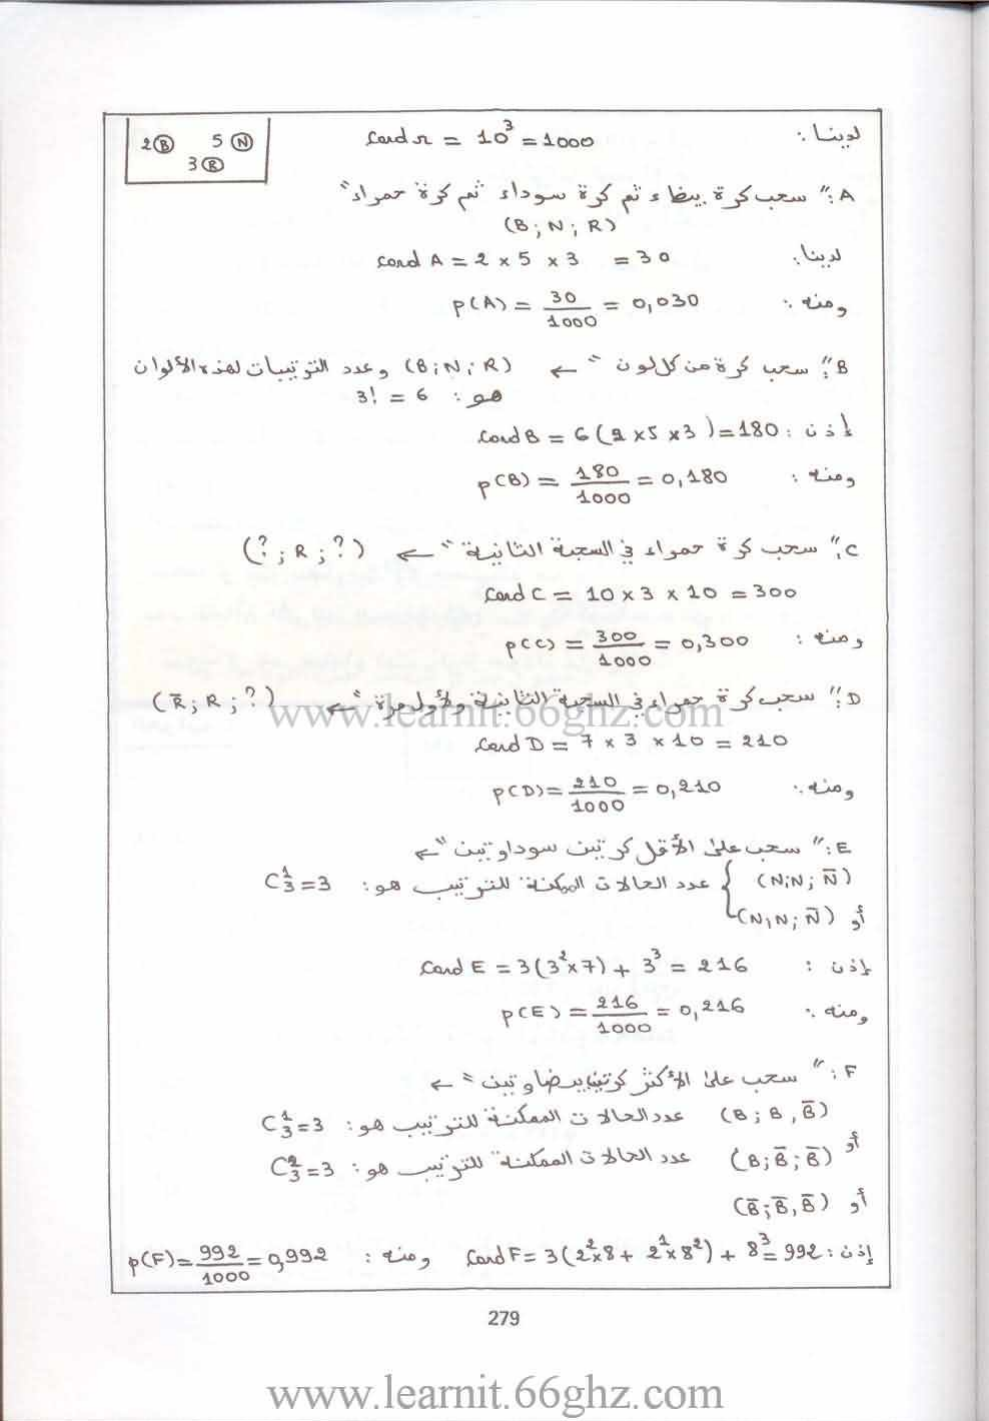 2 B 5 N
3 R
لدينا: Card Ω = 10³ = 1000
A: " سحب كرة بيضاء ثم كرة سوداء ثم كرة حمراء "
(B; N; R)
لدينا: Card A = 2 x 5 x 3 = 30
ومنه: p(A) = 30/1000 = 0,030
B: " سحب كرة من كل لون " ← (B; N; R) وعدد الترتيبات لهذه الألوان
هو: 3! = 6
إذن: Card B = 6(2 x 5 x 3) = 180
ومنه: p(B) = 180/1000 = 0,180
C: " سحب كرة حمراء في السحبة الثانية " ← (?; R; ?)
Card C = 10 x 3 x 10 = 300
ومنه: p(C) = 300/1000 = 0,300
D: " سحب كرة حمراء في السحبة الثانية ولأول مرة " ← (R̄; R; ?)
www.learnit.66ghz.com
Card D = 7 x 3 x 10 = 210
ومنه: p(D) = 210/1000 = 0,210
E: " سحب على الأقل كرتين سوداوتين " ←
(N; N; N̄) عدد الحالات الممكنة للترتيب هو: C₃¹ = 3
أو (N, N; N̄)
إذن: Card E = 3(3² x 7) + 3³ = 216
ومنه: p(E) = 216/1000 = 0,216
F: " سحب على الأكثر كرتين بيضاوتين " ←
(B; B, B̄) عدد الحالات الممكنة للترتيب هو: C₃¹ = 3
أو (B; B̄; B̄) عدد الحالات الممكنة للترتيب هو: C₃² = 3
أو (B̄; B̄, B̄)
إذن: Card F = 3(2² x 8 + 2¹ x 8²) + 8³ = 992 ومنه: p(F) = 992/1000 = 0,992
279
www.learnit.66ghz.com